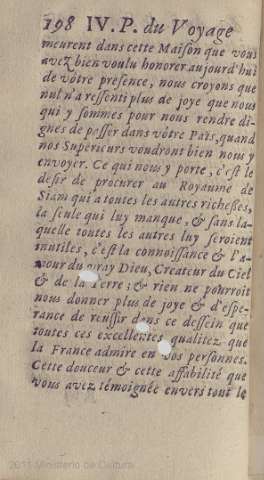 198 IV. P. du Voyage
meurent dans cette Maison que vous
avez bien voulu honorer aujourd'hui
de vôtre presence, nous croyons que
nul n'a ressenti plus de joye que nous
qui y sommes pour nous rendre di-
gnes de passer dans vôtre Païs, quand
nos Superieurs voudront bien nous y
envoyer. Ce qui nous y porte, c'est le
desir de procurer au Royaume de
Siam qui a toutes les autres richesses,
la seule qui luy manque, & sans la-
quelle toutes les autres luy seroient
inutiles, c'est la connoissance & l'a-
mour du vray Dieu, Createur du Ciel
& de la Terre; & rien ne pourroit
nous donner plus de joye & d'espe-
rance de reussir dans ce dessein que
toutes ces excellentes qualitez que
la France admire en vos personnes.
Cette douceur & cette affabilité que
vous avez témoignée envers tout le
2011 Ministerio de Cultura